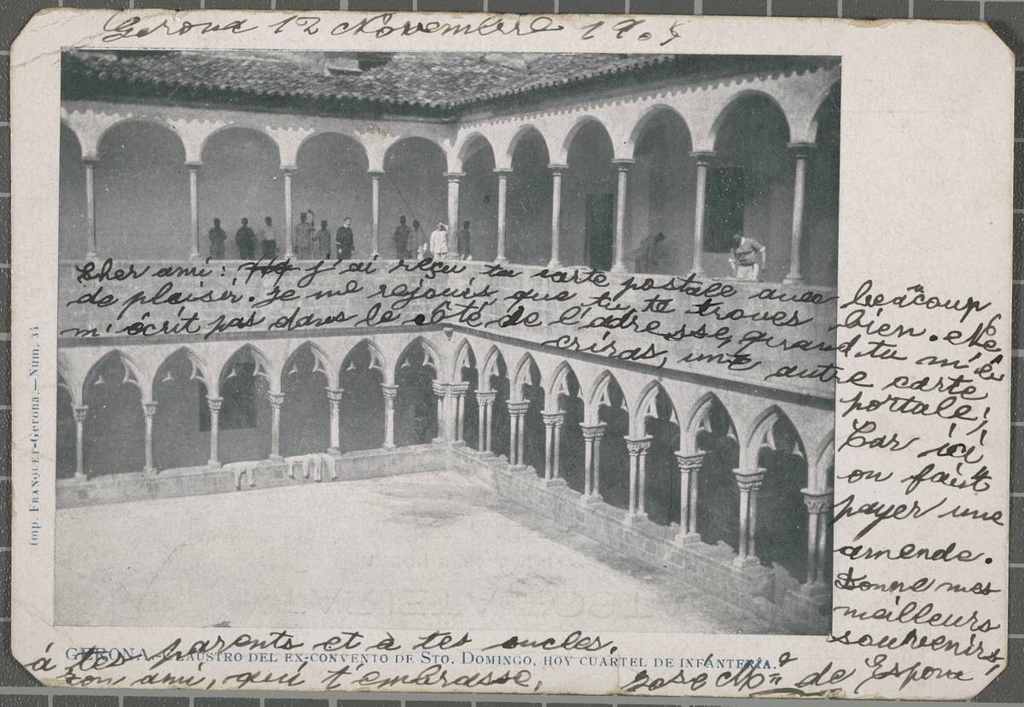 Gerona 12 Novembre 1905
Cher ami: j'ai reçu ta carte postale avec beacoup
de plaisir. Je me rejouis que tu te trouves bien. Ne
m'écrit pas dans le côté de l'adresse, quand tu m'é
criras, une autre carte
portale;
Car ici
on fait
payer une
amende.
Donne mes
meilleurs
souvenirs
à tes parents et à tes oncles.
Ton ami, qui t'embrasse,
José Mª de Espona
GERONA. CLAUSTRO DEL EX-CONVENTO DE STO. DOMINGO, HOY CUARTEL DE INFANTERÍA.
Imp. FRANQUET-Gerona.—Num.